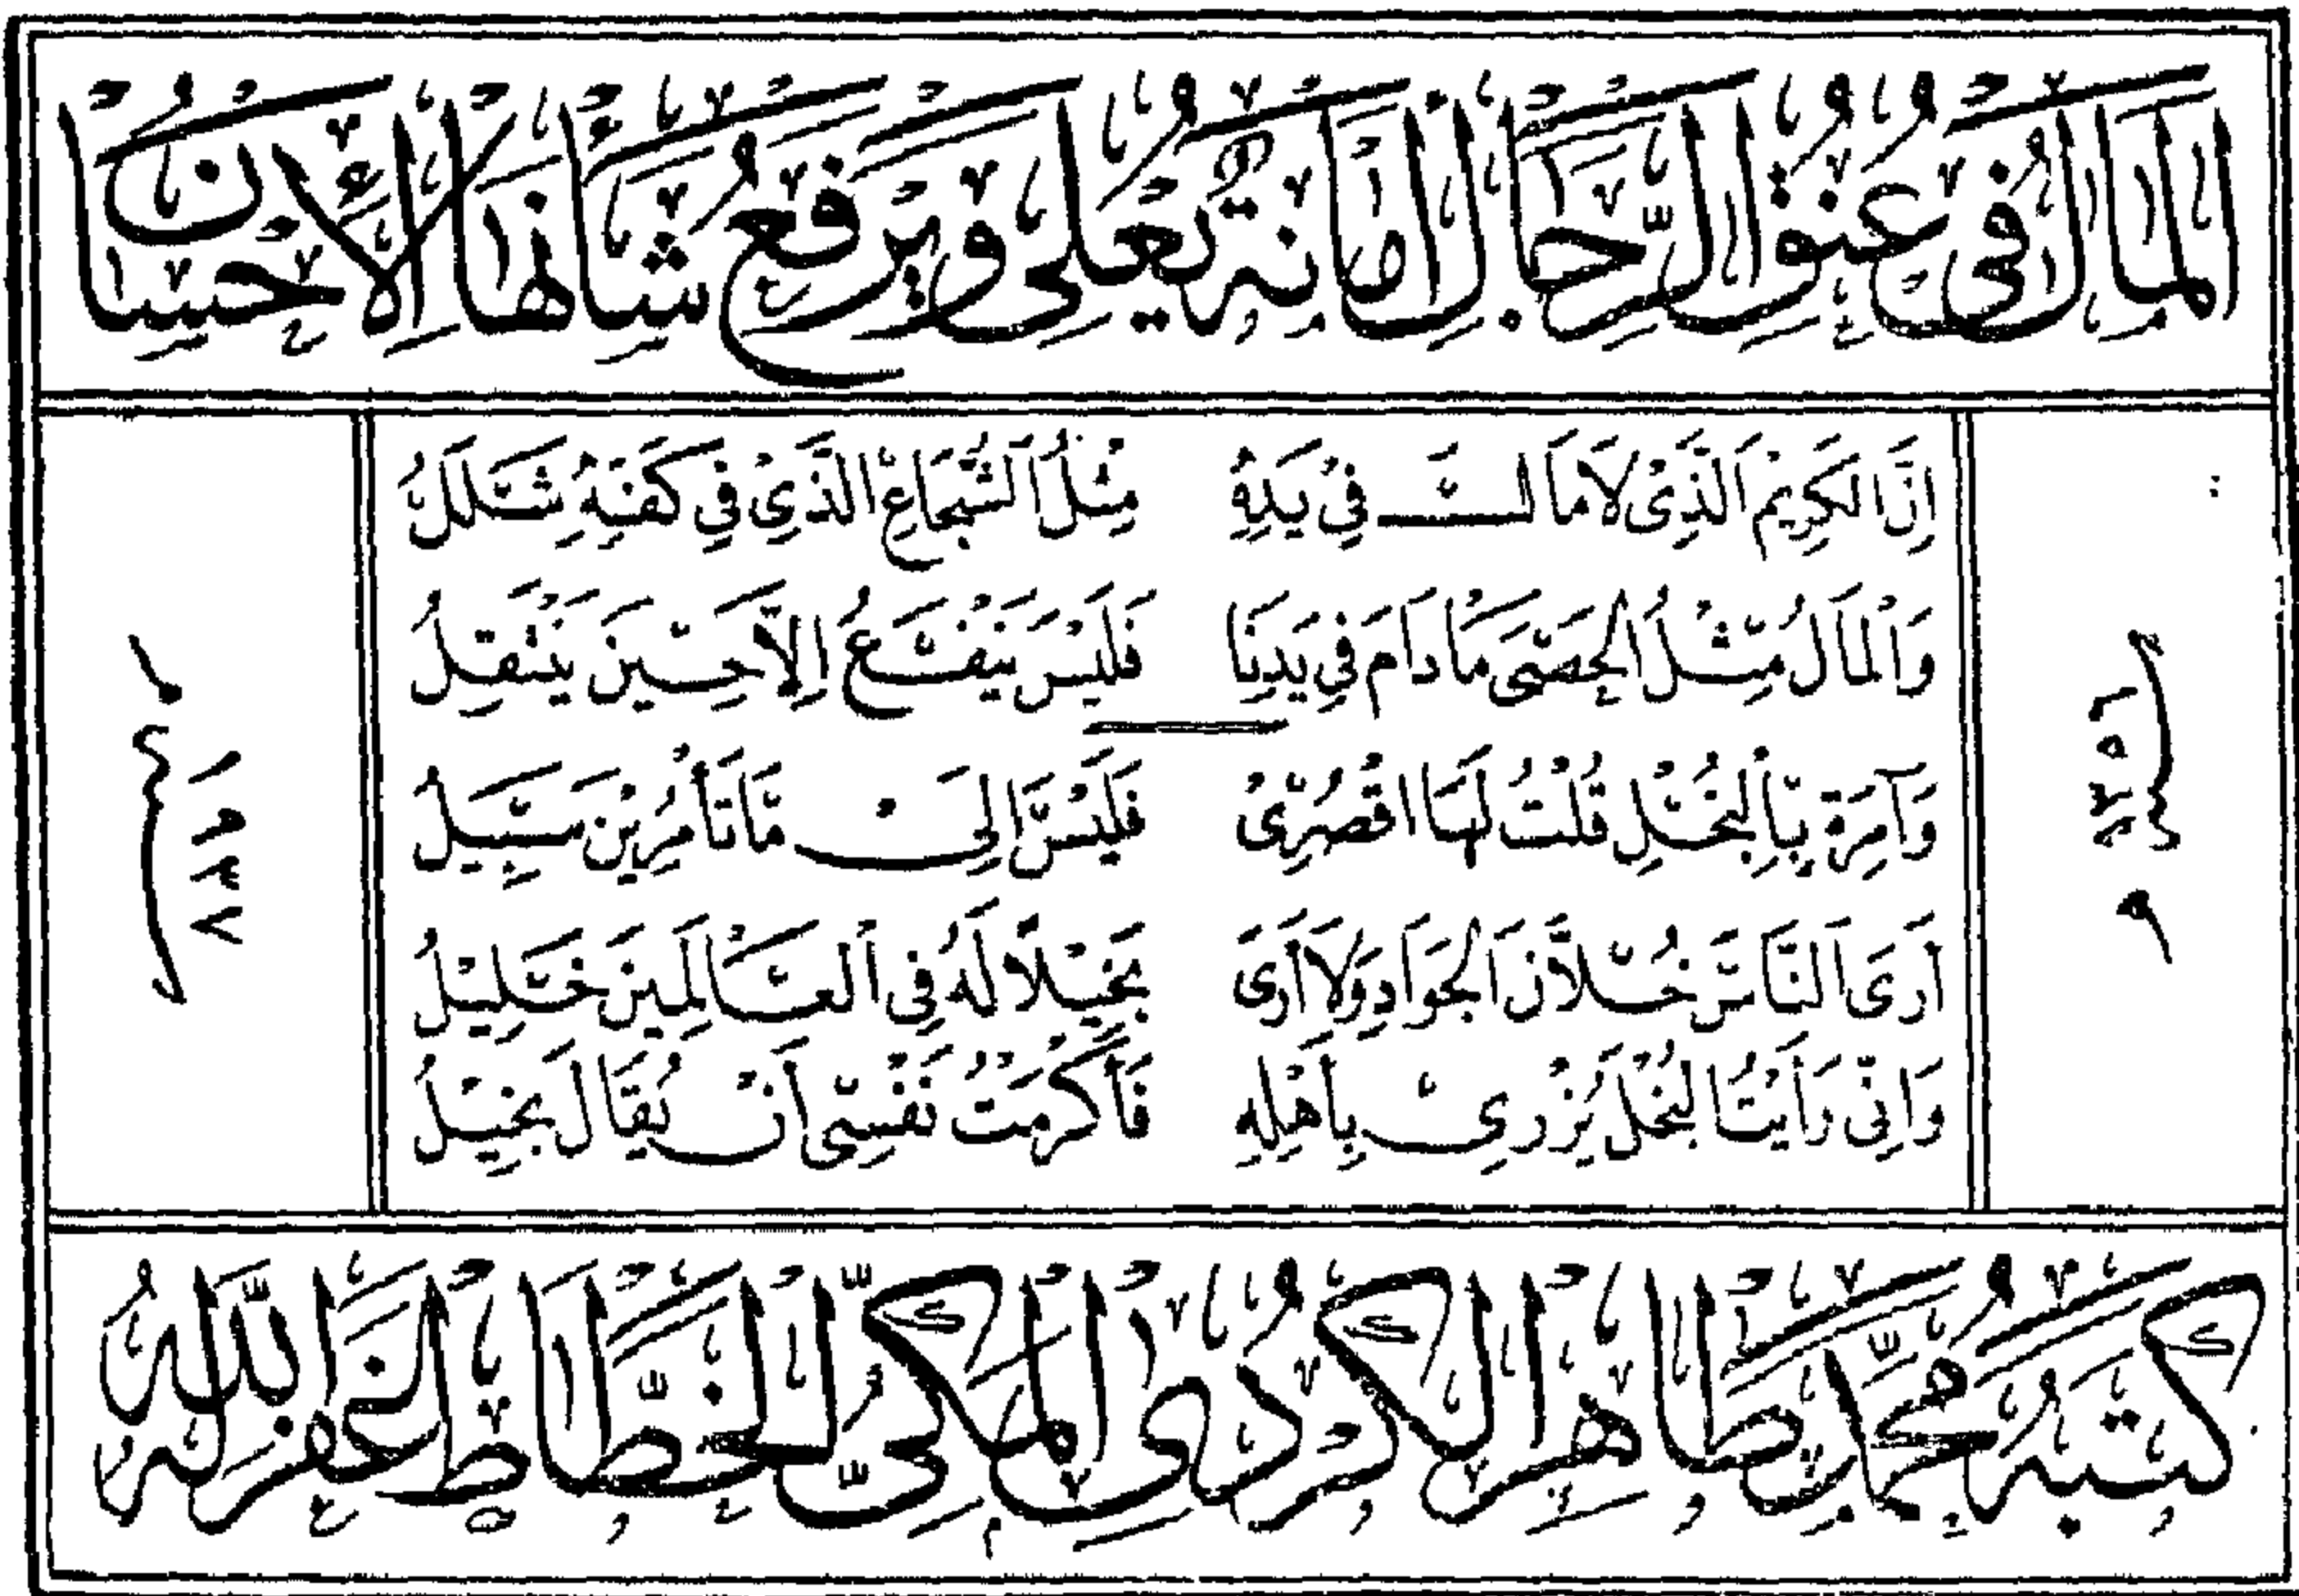 المال في عنق الرجال أمانة يعلي ويرفع شأنها الإحسان
إِنَّ الكَرِيمَ الَّذِي لَا مَالَ فِي يَدِهِ مِثْلُ الشُّجَاعِ الَّذِي فِي كَفِّهِ شَلَلُ
وَالْمَالُ مِثْلُ الحَصَى مَا دَامَ فِي يَدِنَا فَلَيْسَ يَنْفَعُ إِلَّا حِينَ يَنْتَقِلُ
وَآمِرَةٍ بِالْبُخْلِ قُلْتُ لَهَا اقْصُرِي فَلَيْسَ إِلَى مَا تَأْمُرِيْنَ سَبِيلُ
أَرَى النَّاسَ خُلَّانَ الجَوَادِ وَلَا أَرَى بَخِيْلاً لَهُ فِي العَالَمِينَ خَلِيْلُ
وَإِنِّي رَأَيْتُ البُخْلَ يُزْرِي بِأَهْلِهِ فَأَكْرَمْتُ نَفْسِي أَنْ يُقَالَ بَخِيْلُ
كتبه محمد طاهر الكردي المكي الخطاط غفر الله له